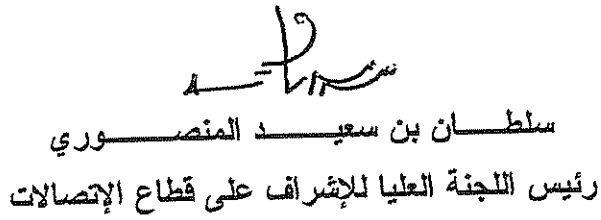 سلطان بن سعيد المنصوري
رئيس اللجنة العليا للإشراف على قطاع الإتصالات